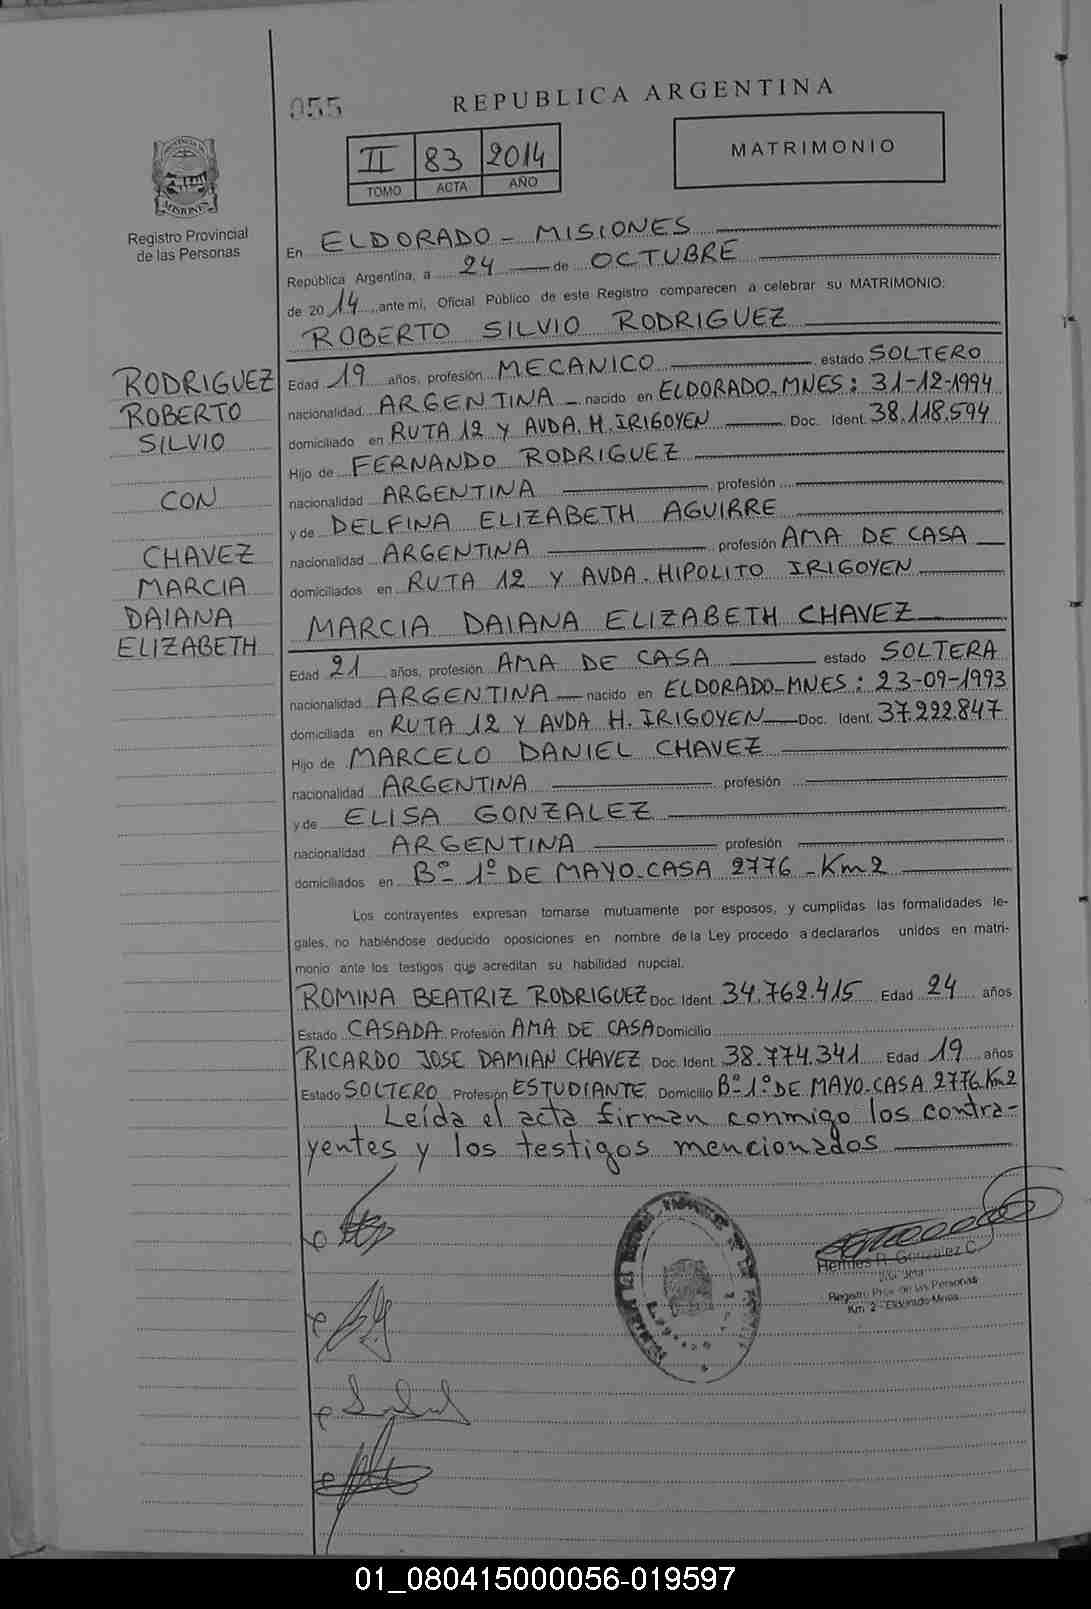 055
REPUBLICA ARGENTINA
II 83 2014
TOMO ACTA AÑO
MATRIMONIO
Registro Provincial
de las Personas
En ELDORADO - MISIONES
República Argentina, a 24 de OCTUBRE
de 2014, ante mi, Oficial Público de este Registro comparecen a celebrar su MATRIMONIO:
ROBERTO SILVIO RODRIGUEZ
RODRIGUEZ
ROBERTO
SILVIO
CON
CHAVEZ
MARCIA
DAIANA
ELIZABETH
Edad 19 años, profesión MECANICO estado SOLTERO
nacionalidad ARGENTINA nacido en ELDORADO-MNES: 31-12-1994
domiciliado en RUTA 12 Y AVDA. H. IRIGOYEN Doc. Ident. 38.118.594
Hijo de FERNANDO RODRIGUEZ
nacionalidad ARGENTINA profesión
y de DELFINA ELIZABETH AGUIRRE
nacionalidad ARGENTINA profesión AMA DE CASA
domiciliados en RUTA 12 Y AVDA. HIPOLITO IRIGOYEN
MARCIA DAIANA ELIZABETH CHAVEZ
Edad 21 años, profesión AMA DE CASA estado SOLTERA
nacionalidad ARGENTINA nacido en ELDORADO-MNES: 23-09-1993
domiciliada en RUTA 12 Y AVDA H. IRIGOYEN Doc. Ident. 37.222.847
Hijo de MARCELO DANIEL CHAVEZ
nacionalidad ARGENTINA profesión
y de ELISA GONZALEZ
nacionalidad ARGENTINA profesión
domiciliados en Bº 1º DE MAYO-CASA 2776 - Km 2
Los contrayentes expresan tomarse mutuamente por esposos, y cumplidas las formalidades le-
gales, no habiéndose deducido oposiciones en nombre de la Ley procedo a declararlos unidos en matri-
monio ante los testigos que acreditan su habilidad nupcial.
ROMINA BEATRIZ RODRIGUEZ Doc. Ident. 34.762.415 Edad 24 años
Estado CASADA Profesión AMA DE CASA Domicilio
RICARDO JOSE DAMIAN CHAVEZ Doc. Ident. 38.774.341 Edad 19 años
Estado SOLTERO Profesión ESTUDIANTE Domicilio Bº 1º DE MAYO-CASA 2776 Km 2
Leída el acta firman conmigo los contra-
yentes y los testigos mencionados
Hermes R. Gonzalez C.
Registro Prov. de las Personas
Km. 2 - Eldorado Mnes.
01_080415000056-019597